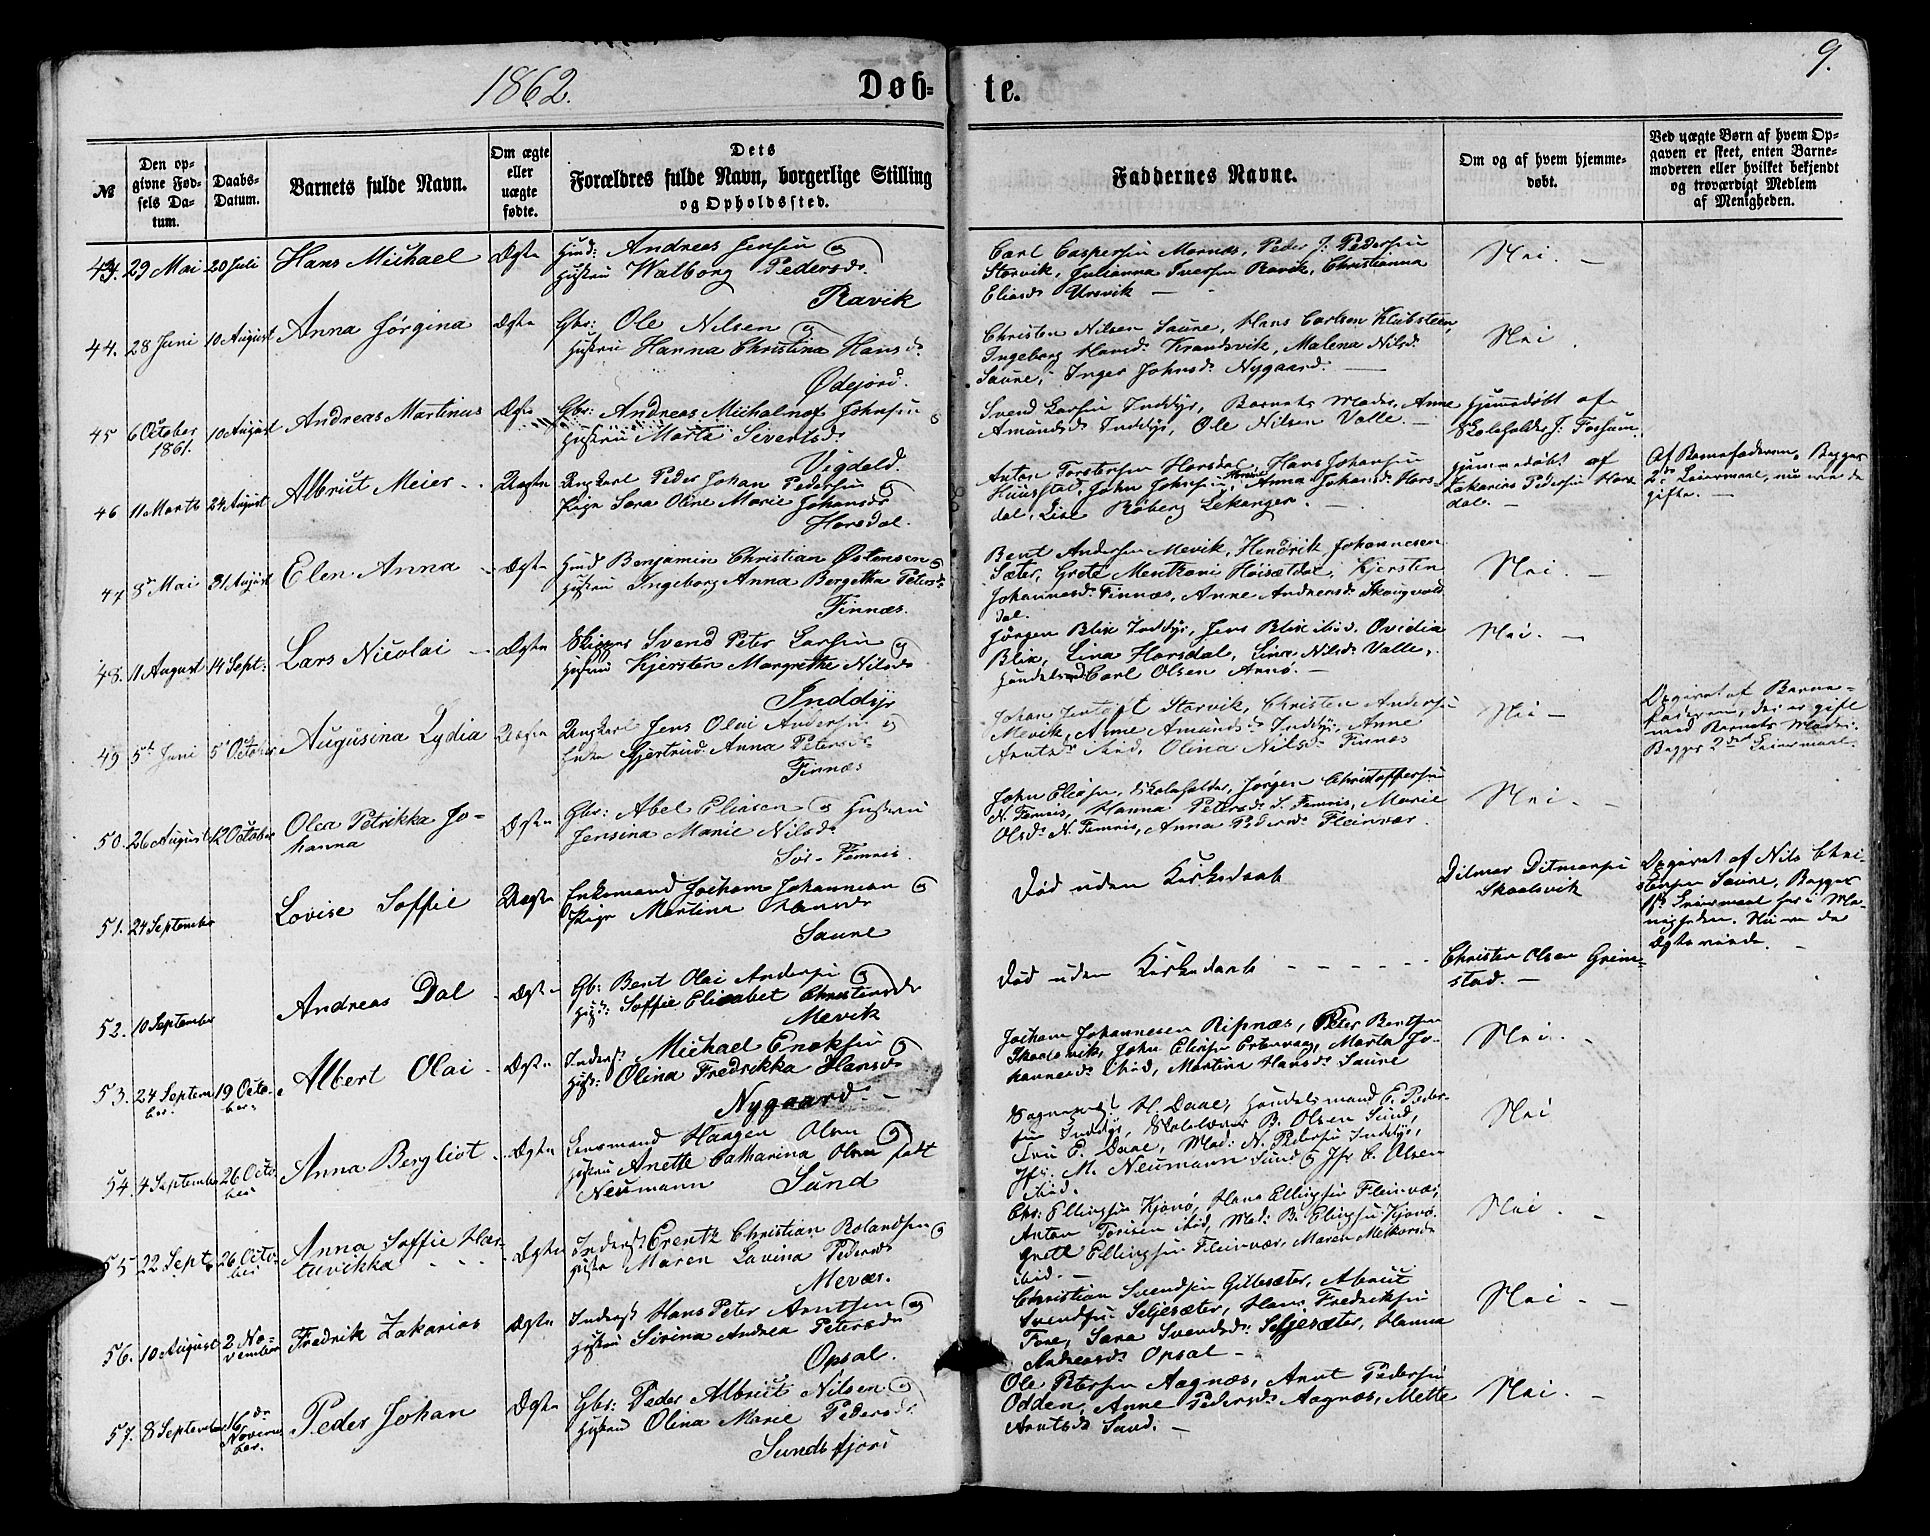 1862.
Døb-
te.
9.
№
Den op-
givne Fød-
sels Da-
tum.
Daabs-
Datum.
Barnets fulde Navn.
Om ægte
eller
uægte
fødte.
Dets
Forældres fulde Navn, borgerlige Stilling
og Opholdssted.
Faddernes Navne.
Om og af hvem hjemme-
døbt.
Ved uægte Børn af hvem Op-
gaven er skeet, enten Barne-
moderen eller hvilket bekjendt
og troværdigt Medlem
af Menigheden.
43. 29 Mai 20 Juli Hans Michael Ægte Huusm: Andreas Jensen og
Hustru Walborg Pedersd.
Ravik
Carl Caspersen Mornes, Peder J. Pedersen
Storvik, Julianna Iversen Ravik, Christianna
Eliasd. Ursvik —
Nei. —
44. 28 Juni 10 August Anna Jørgina Ægte Gbr: Ole Nilsen og
Hustru Hanna Christina Hansd.
Ødejord.
Christen Nilsen Saure, Hans Carlsen Klubsteen,
Ingeborg Hansd. Krandsvik, Malena Nilsd.
Saure, Inger Johnsd. Nygaard. —
Nei.
45 6 October 1861. 10 August Andreas Martinus Ægte Gbr: Andreas Michalnof Johnsen og
Hustru Marta Sivertsd.
Vigdal.
Svend Larsen Inddyr, Barnets Moder, Anne
Amundsd. Inddyr, Ole Nilsen Valle. —
Hjemmedøbt af
Skoleholder J. Forsum.
46 11 Marts 24 August Albriut Meier Uægte Ungkarl Peder Johan Pedersen og
Pige Sara Oline Marie Johansd.
Horsdal.
Anton Torstersen Horsdal, Hans Johansen
Huusstad, John Johnsen, Anna Johansd. Hors-
dal, Lise Røberg Lekanger. —
Hjemmedøbt af
Zakarias Pedersen Hors-
dal. —
Af Barnefaderen, Begges
2det Leiermaal, nu ere de
gifte. —
47 8de Mai 31 August Elen Anna Ægte Huusm Benjamin Christian Østensen og
Hustru Ingeborg Anna Bergetha Petersd.
Finnæs.
Bent Andersen Mevik, Hendrik Johannesen
Sæter, Grete Mentzoni Høisætdal, Kjersten
Johannesd. Finnæs, Anne Andreasd. Skougvold
dal.
Nei. —
48. 11 August 14 Sept: Lars Nicolai Ægte Skipper Svend Peter Larsen og
Hustru Kjersten Margrethe Nilsd.
Inddyr
Jørgen Blix Inddyr, Jens Blix ibid. Ovidia
Blix, Lina Horsdal, Lina Nilsd. Valle,
Handelsmd Carl Olsen Arnø. —
Nei. —
49 5te Juni 5te October Augusina Lydia Uægte Ungkarl Jens Olai Andersen og
Enke Gjertrud Anna Petersd.
Finnæs
Johan Jentoft Storvik, Christen Andersen
Mevik, Anne Amundsd. Inddyr, Anne
Arntsd. ibid, Olina Nilsd. Finnæs
Nei —
Opgivet af Barne-
faderen, der er gift
med Barnets Moder.
Begges 2det Leiermaal.
50. 26 August 12 October Olea Petrikka Jo-
hanna Ægte Gbr: Abel Eliasen og Hustru
Jensina Marie Nilsd.
Sør-Femris.
John Eliasen, Skoleholder, Jørgen Christoffersen
N. Femris, Hanna Petersd. S. Femris, Marie
Olsd. N. Femris, Anna Pedersd. Fleinvær.
Nei. —
51. 24 September Lovise Soffie Uægte Enkemand Jochom Johannesen og
Pige Martina Hansd.
Saure
Død uden Kirkedaab
Ditmar Ditmarsen
Skaalsvik
Opgivet af Nils Chri-
stensen Saure, Begges
1ste Leiermaal her i Me-
nigheden. Nu ere de
Ægteviede. —
52. 10 September Andreas Dal Ægte Gb: Bent Olai Andersen og
Hust: Soffie Elisabet Christensd.
Mevik
Død uden Kirkedaab — — — —
Christen Olsen Grim-
stad. —
53. 24 Septem-
ber. 19 Octo-
ber. Albert Olai Ægte Inderst Michael Enoksen og
Hust: Olina Fredrikka Hansd.
Nygaard. —
Jochom Johannesen Ripnæs, Peter Bentsen
Skaalsvik, John Eliasen Ertenvaag, Marta Jo-
hannesd. ibid, Martina Hansd. Saure
Nei. —
54. 4 September 26 Octo-
ber Anna Bergliot Ægte Lensmand Haagen Olsen og
Hustru Anette Catharina Olsen født
Neumann Sund
Sognepræst H. Daae, Handelsmand E. Peder-
sen Inddyr, Skolelærer B. Olsen Sund,
Fru E. Daae, Mad: N. Petersen Inddyr,
Jfr. M. Neumann Sund og Jfr C. Olsen
ibid.
Nei
55 22 Sept. 26 Octo-
ber Anna Soffie Har-
tuvikka Ægte Inderst Erentz Christian Rolandsen og
Hustru Maren Lavina Pedersd.
Mevær.
Chr: Ellingsen Kjønø, Hans Ellingsen Fleinvær,
Anton Torisen ibid, Mad: B. Elingsen Kjønø,
Grete Ellingsen Fleinvær, Maren Melkersd.
ibid. —
Nei. —
56. 10 August 2 No-
vember Fredrik Zakarias Ægte Inderst Hans Peter Arntsen og
Hustru Sirina Andrea Petersd.
Opsal.
Christian Svendsen Gillesæter, Albriut
Svendsen Seljesæter, Hans Fredriksen
Fore, Sara Svendsd. Seljesæter, Hanna
Andreasd. Opsal —
Nei. —
57. 8 September 16de
Novem-
ber. Peder Johan Ægte Gbr: Peder Albriut Nilsen og
Hustru Olina Marie Pedersd.
Sundsfjord
Ole Petersen Aagnæs, Arnt Pedersen
Odden, Anne Pedersd. Aagnæs, Mette
Arntsd. Sund. —
Nei. —